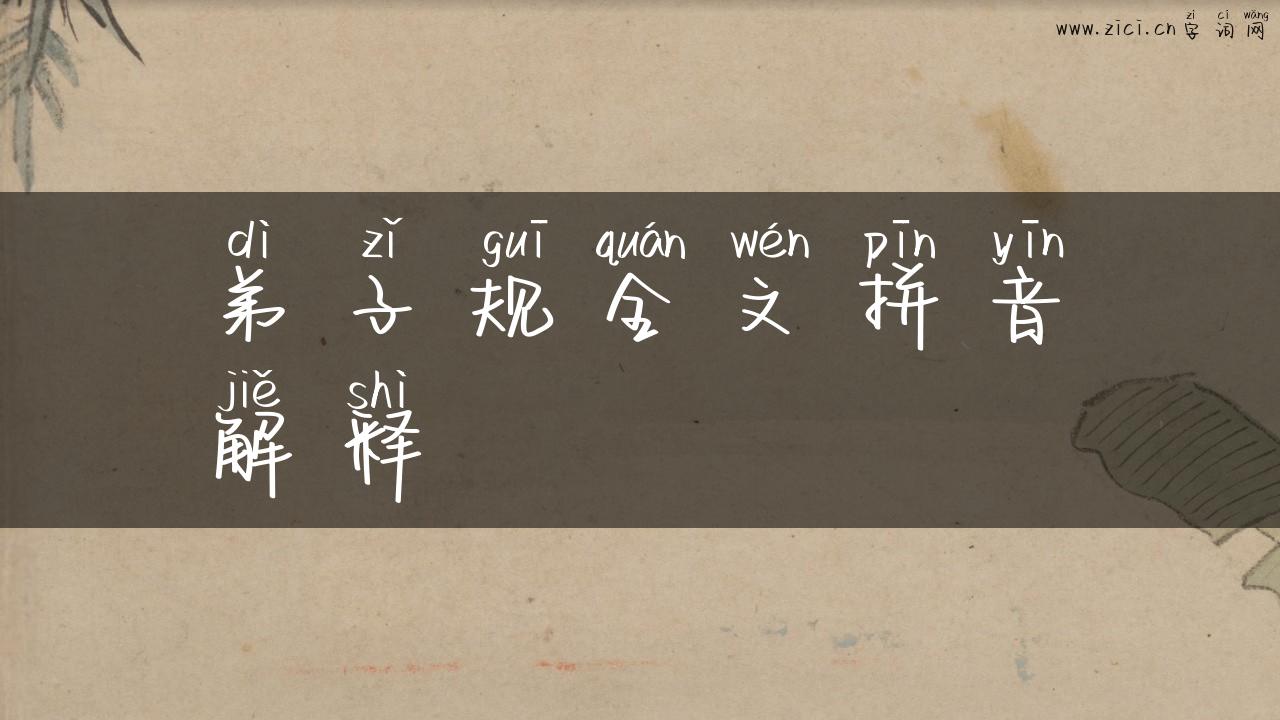 zì cí wǎng
www.zici.cn 字词网
dì zǐ guī quán wén pīn yīn
弟子规全文拼音
jiě shì
解释